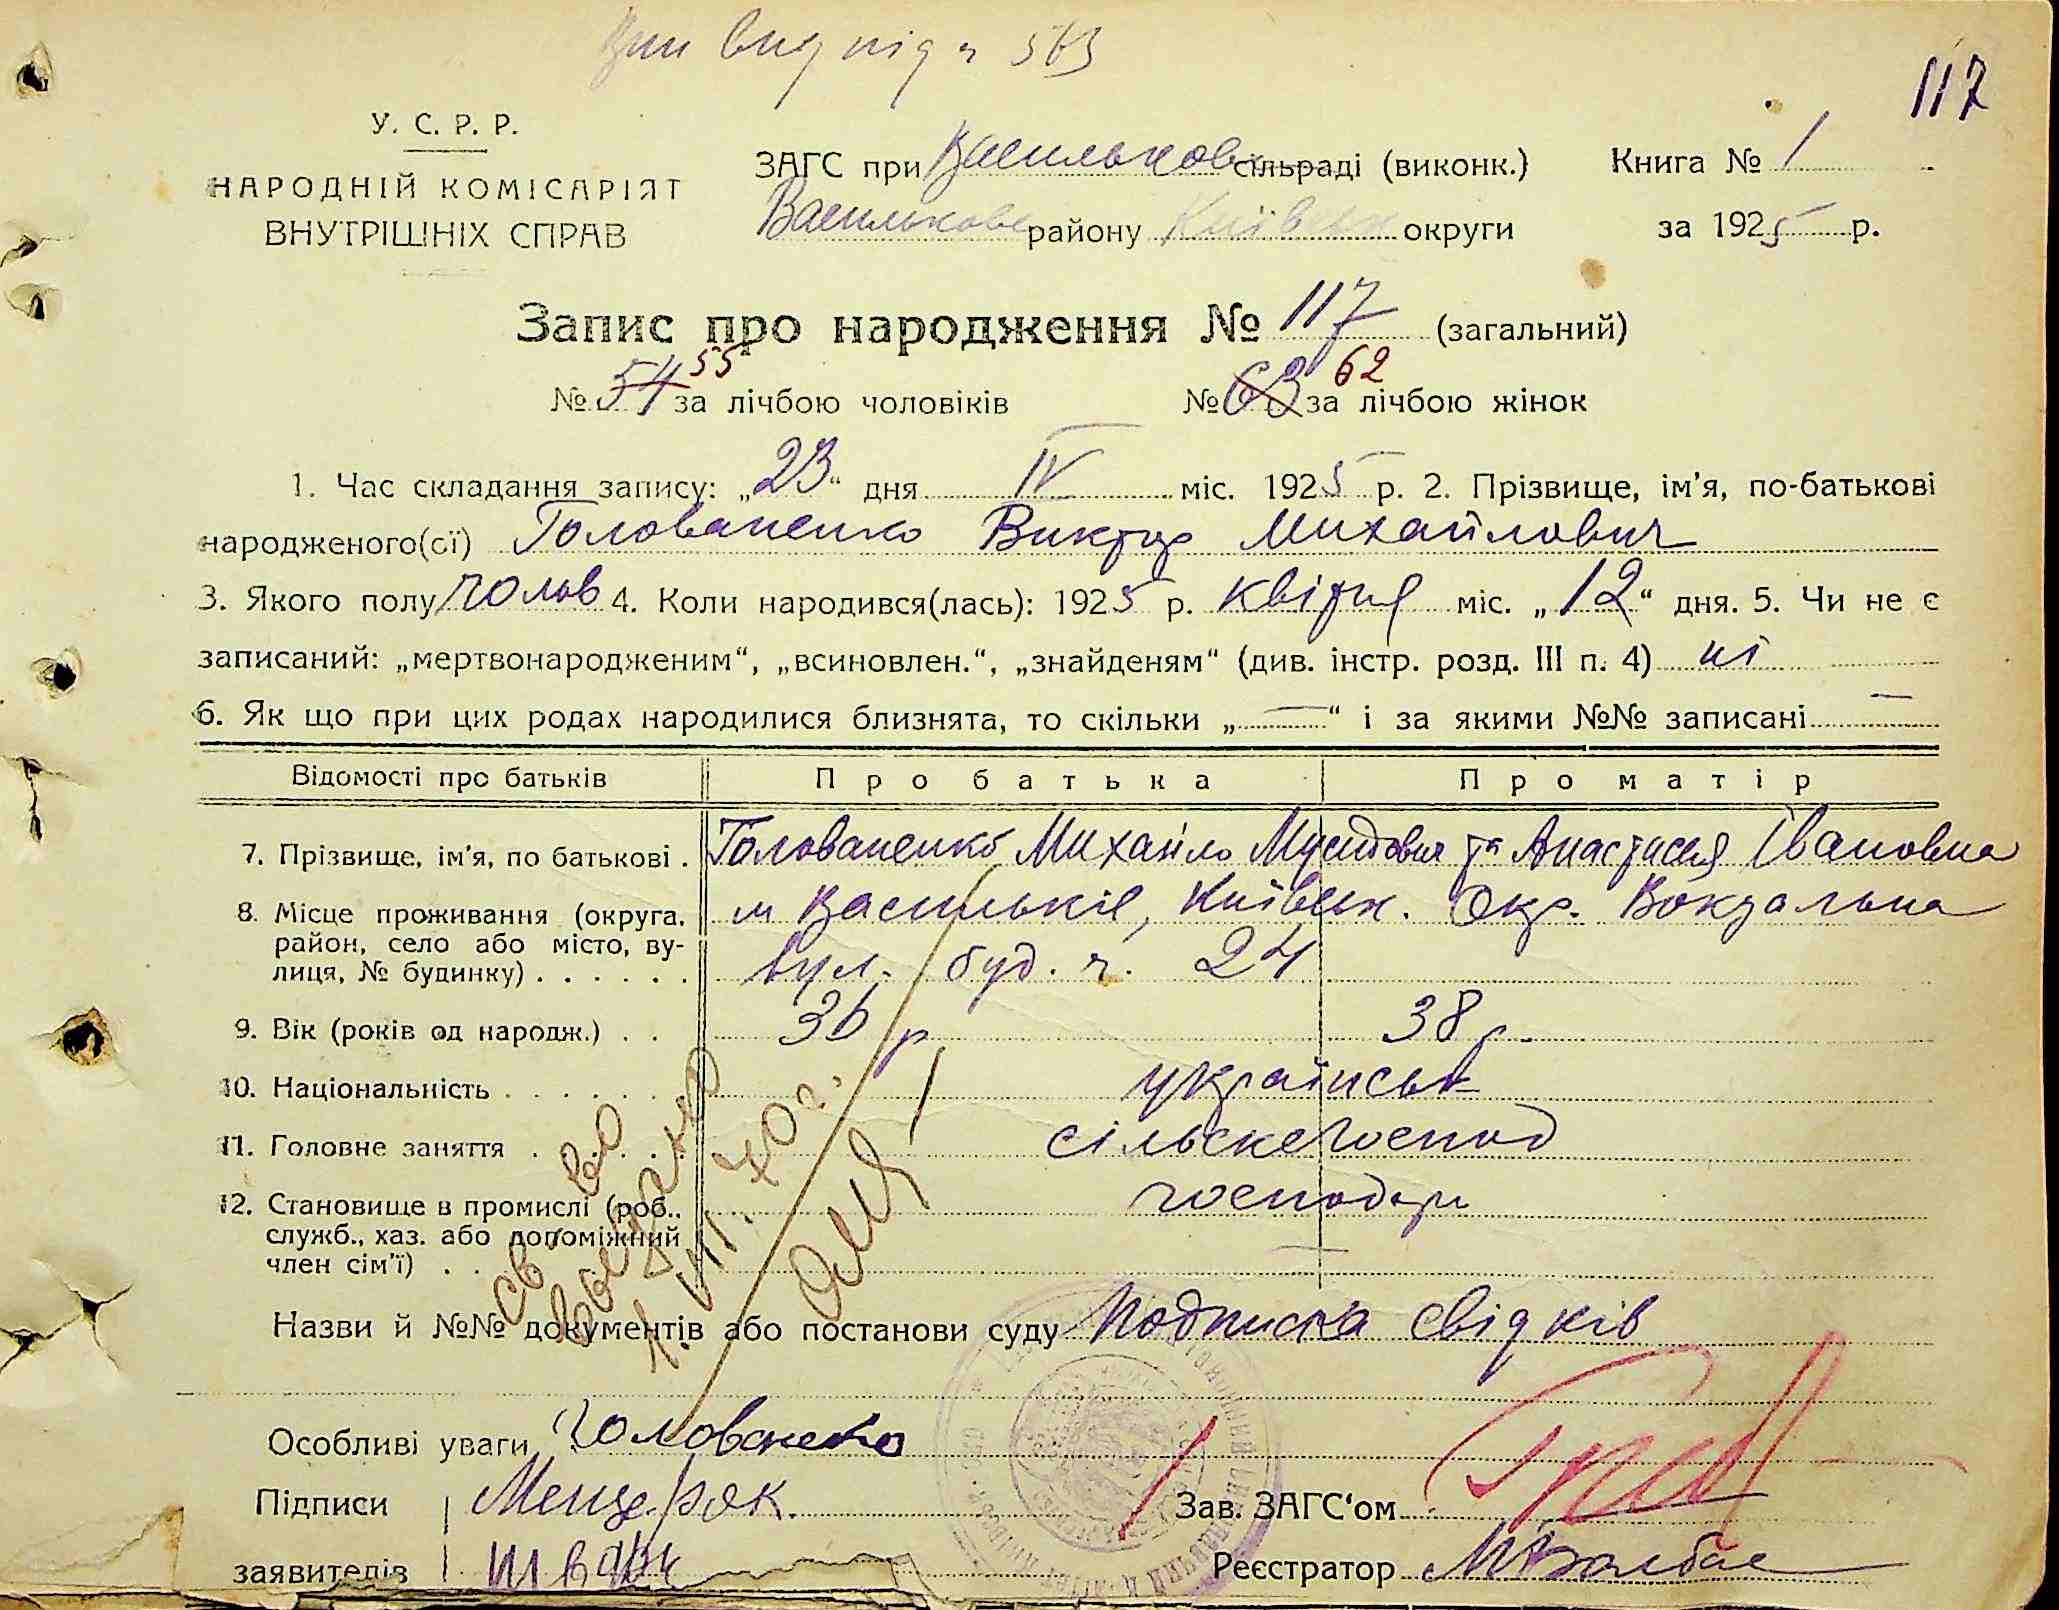 117
У. С. Р. Р.
НАРОДНІЙ КОМІСАРІЯТ
ВНУТРІШНІХ СПРАВ
ЗАГС при Васильков сільраді (виконк.)
Васильков району Київськ округи
Книга № 1
за 1925 р.
Запис про народження № 117 (загальний)
№ 54 55 за лічбою чоловіків № 63 62 за лічбою жінок
1. Час складання запису: „23“ дня IV міс. 1925 р. 2. Прізвище, ім'я, по-батькові
народженого(ої) Голованенко Виктор Михайлович
3. Якого полу чолов 4. Коли народився(лась): 1925 р. квітня міс. „12“ дня. 5. Чи не є
записаний: „мертвонародженим“, „всиновлен.“, „знайденям“ (див. інстр. розд. III п. 4) ні
6. Як що при цих родах народилися близнята, то скільки „—“ і за якими №№ записані —
Відомості про батьків Про батька Про матір
7. Прізвище, ім'я, по батькові . Голованенко Михайло Мусидович та Анастасия Івановна
8. Місце проживання (округа, м Васильків, Київськ. Окр. Вокзальна
район, село або місто, ву-
лиця, № будинку) . . . . . . вул. буд. ч. 24
9. Вік (років од народж.) . . 36 р 38 р.
10. Національність . . . . . . українськ
11. Головне заняття . . . . . сільскегоспод
12. Становище в промислі (роб., господар
служб., хаз. або допоміжний
член сім'ї) . .
св-во
выдано
Назви й №№ документів або постанови суду Подписка свідків
Особливі уваги Голованенко
Підписи Мещеряк.
Зав. ЗАГС‘ом
заявителів
Реєстратор